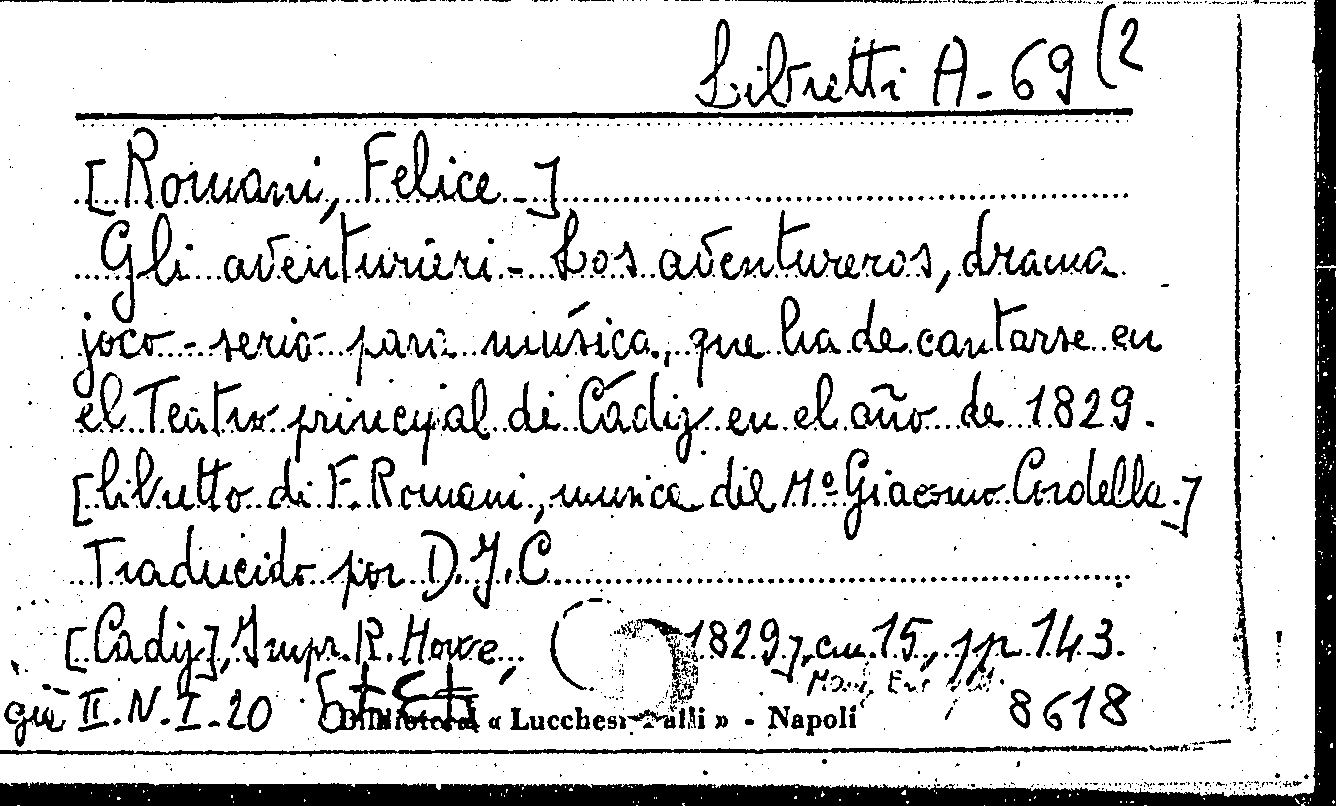 Libretti A-69(2
[Romani, Felice-]
Gli aventurieri - Los aventureros, drama
joco-serio para música, que ha de cantarse en
el Teatro principal de Cádiz en el año de 1829.
[libretto di F. Romani, musica del Mº Giacomo Cordella.]
Traducido por D.J.C.
[Cadiz], Impr. R. Howe, 1829, cm. 15, pp. 143.
già II.N.I.20 Biblioteca « Lucchesi-Palli » - Napoli 8618